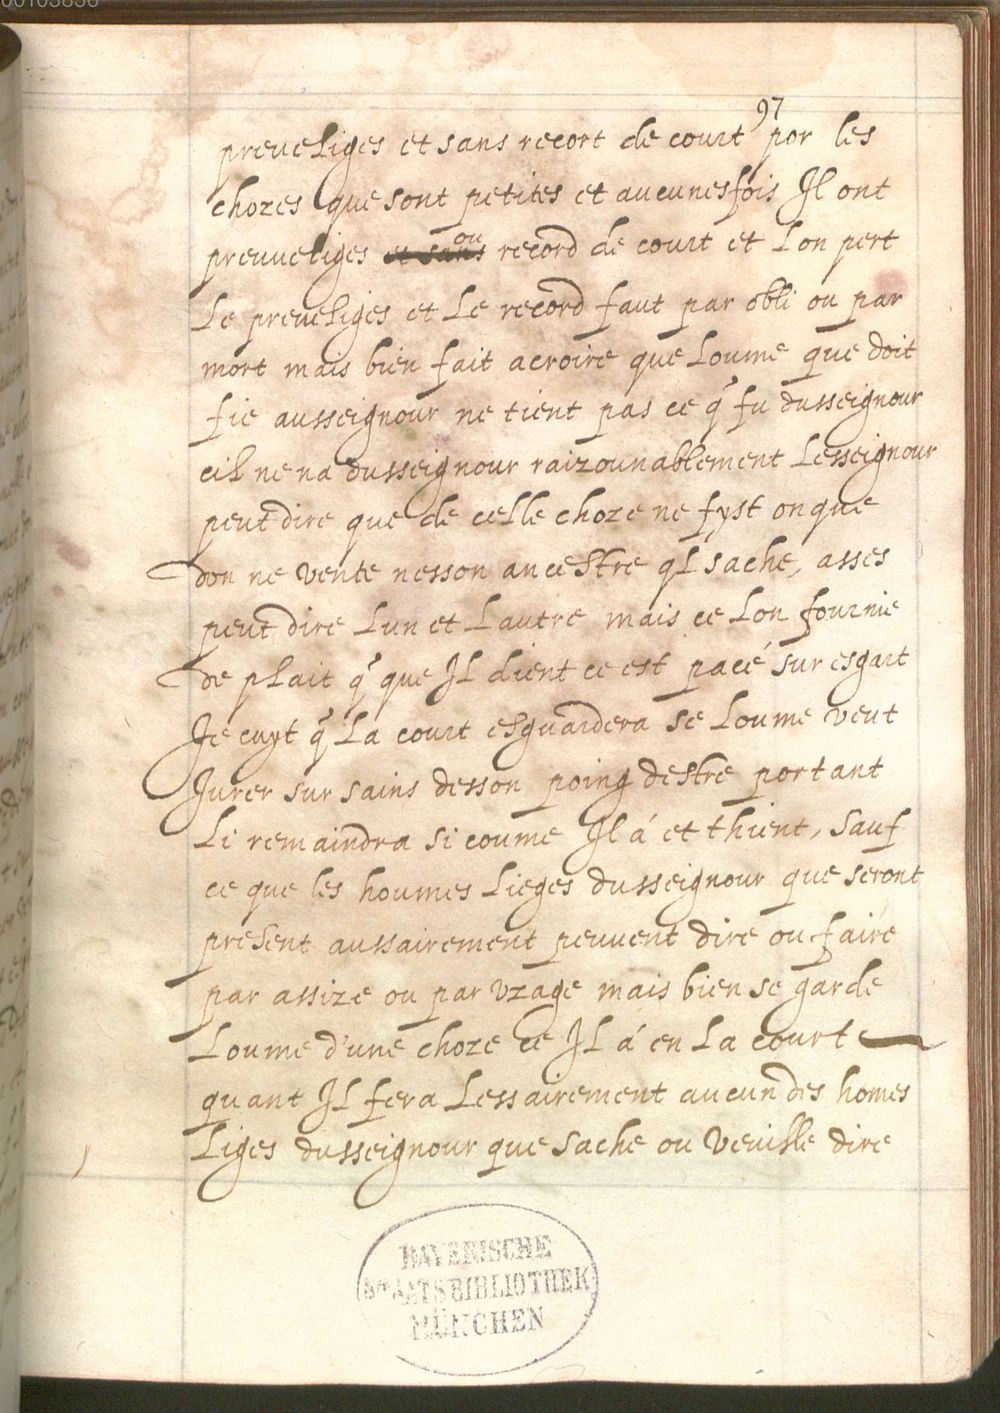 00103836
97
preveliges et sans recort de court por les
chozes que sont petites et aucunesfois Il ont
preuveliges et sans ou record de court et Lon pert
Le preveliges et Le record faut par obli ou par
mort mais bien fait acroire que Loume que doit
fie ausseignour ne tient pas ce q̃ fu dusseignour
cil ne na dusseignour raizounablement Lesseignour
peut dire que de celle choze ne fyst onque
don ne vente nesson ancestre qL sache, asses
peut dire Lun et Lautre mais ce Lon fournie
de plait q̃ que IL dient ce est pacé sur esgart
Je cuyt q̃ La court esguardera se Loume veut
Jurer sur sains desson poing destre portant
Li remaindra si coume Il á et thient, sauf
ce que les houmes Lieges dusseignour que seront
present aussairement peuvent dire ou faire
par assize ou par vzage mais bien se garde
Loume d'une choze ce IL á en La court
quant IL fera Lessairement aucun des homes
Liges dusseignour que sache ou veuille dire
BAYERISCHE
STAATSBIBLIOTHEK
MÜNCHEN